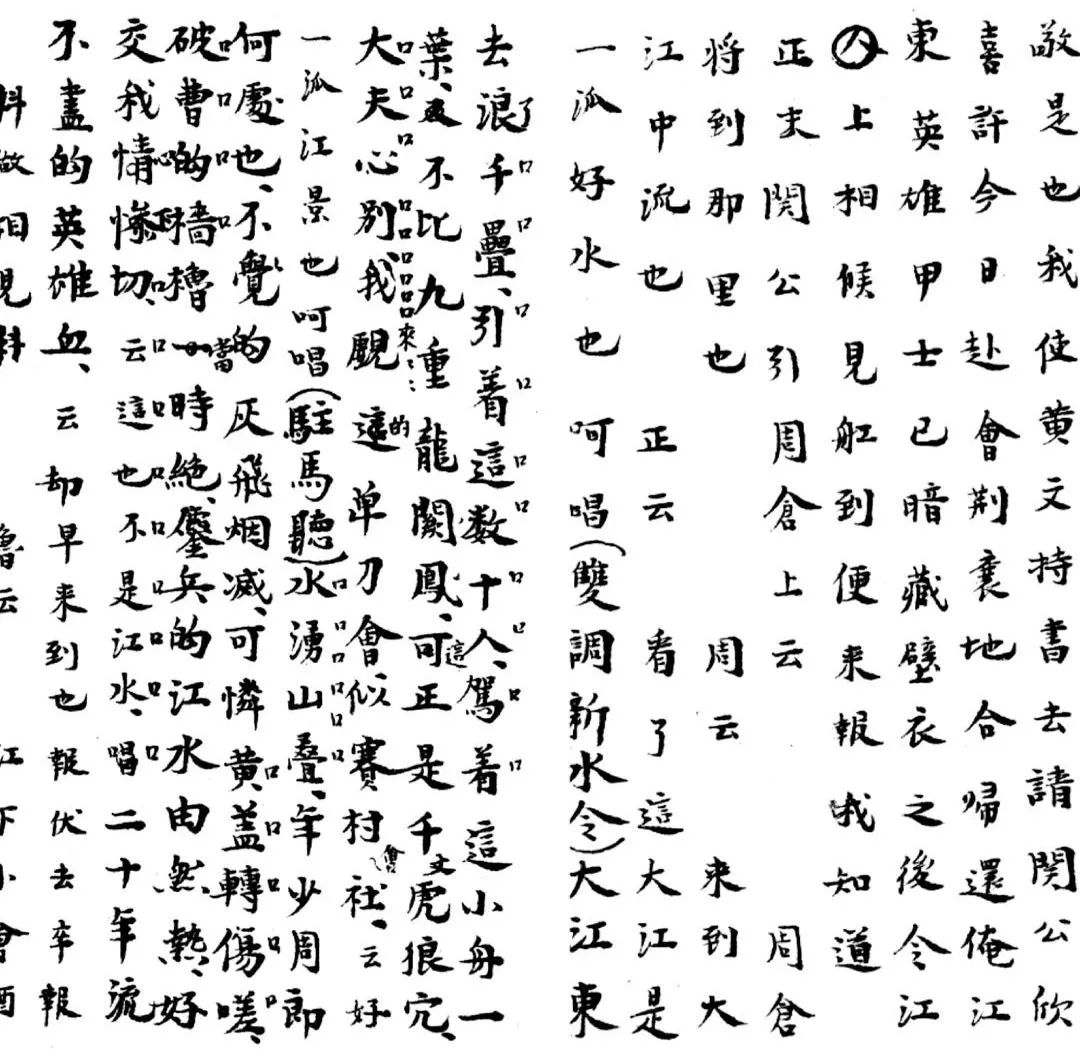 敬是也我使黄文持書去請関公欣
喜許今日赴會荆襄地合歸還俺江
東英雄甲士已暗藏壁衣之後令江
上相候見舡到便来報我知道
正末関公引周倉上云 周倉
将到那里也 周云 来到大
江中流也 正云 看了這大江是
一派好水也呵唱(雙調新水令)大江東
去了浪千疊、引着這数十人、駕着這小舟一
葉、又不比九重龍闕鳳、可這正是千丈虎狼穴、
大夫心别、我覷這的单刀會、似賽村會社、云好
一派江景也呵唱(駐馬聽)水湧山疊、年少周郎
何處也、不覺的灰飛烟滅、可憐黄盖轉傷嗟、
破曹的檣櫓一當時絶、鏖兵的江水由然熱、好
交我情心惨切、云這也不是江水、唱二十年流
不盡的英雄血、云却早来到也報伏去卒報
科做相見科 魯云 江下小會酒